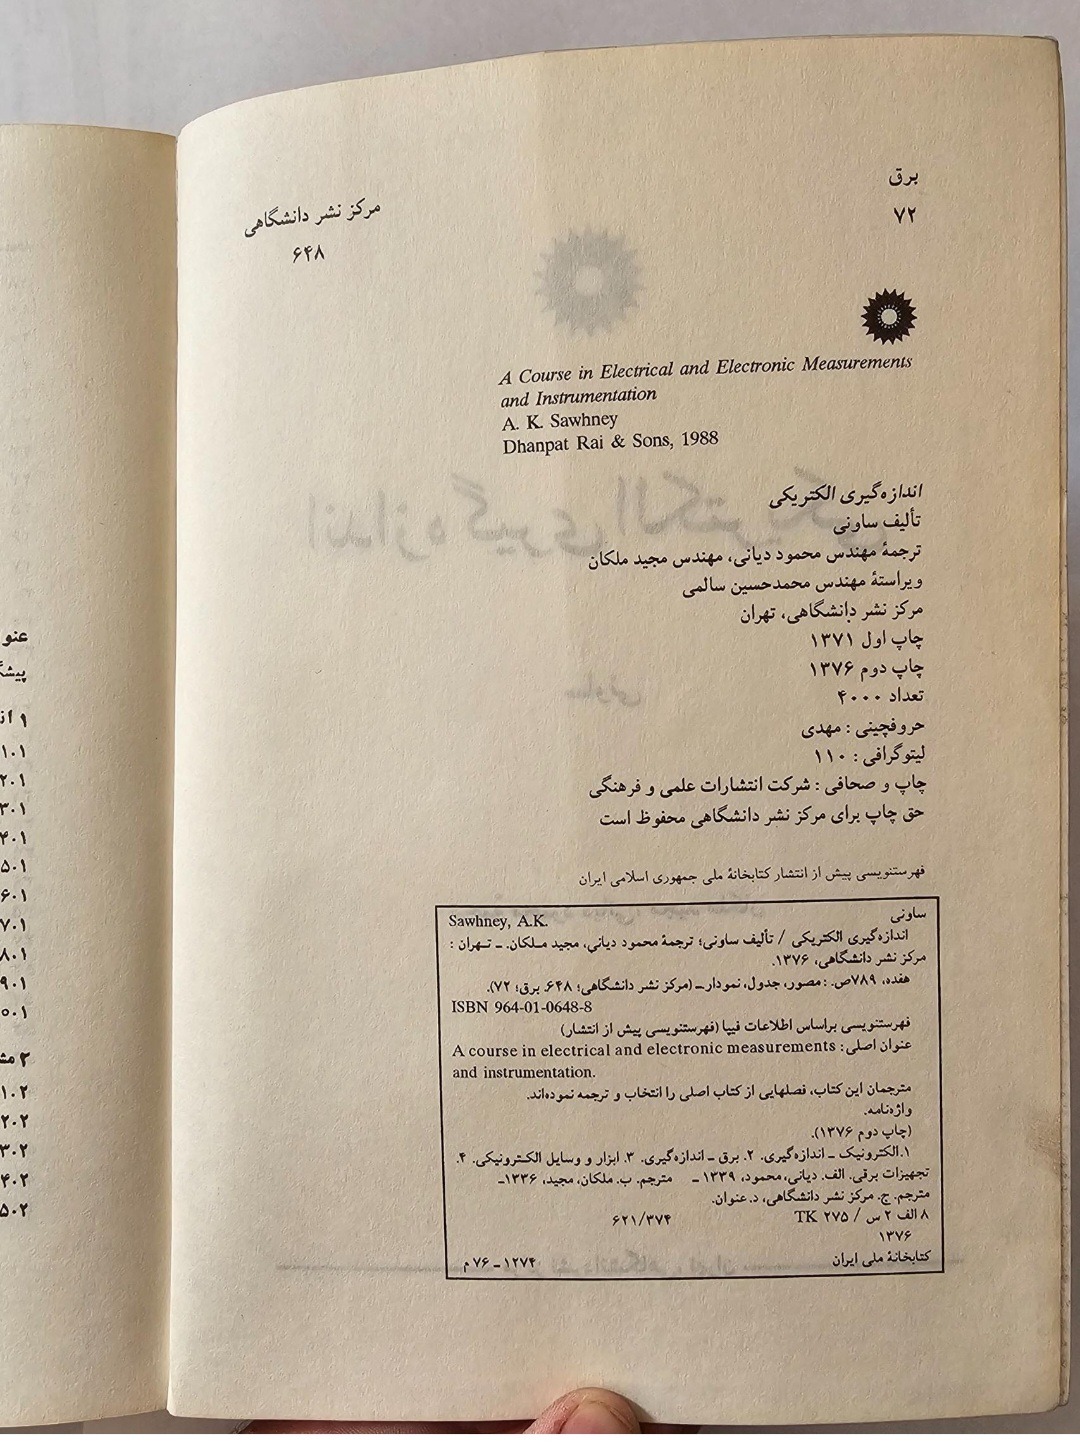 برق
۷۲
مرکز نشر دانشگاهی
۶۴۸
A Course in Electrical and Electronic Measurements
and Instrumentation
A. K. Sawhney
Dhanpat Rai & Sons, 1988
اندازه‌گیری الکتریکی
تألیف ساونی
ترجمهٔ مهندس محمود دیانی، مهندس مجید ملکان
ویراستهٔ مهندس محمدحسین سالمی
مرکز نشر دانشگاهی، تهران
چاپ اول ۱۳۷۱
چاپ دوم ۱۳۷۶
تعداد ۴۰۰۰
حروفچینی : مهدی
لیتوگرافی : ۱۱۰
چاپ و صحافی : شرکت انتشارات علمی و فرهنگی
حق چاپ برای مرکز نشر دانشگاهی محفوظ است
فهرستنویسی پیش از انتشار کتابخانهٔ ملی جمهوری اسلامی ایران
ساونی Sawhney, A.K.
اندازه‌گیری الکتریکی / تألیف ساونی؛ ترجمهٔ محمود دیانی، مجید ملکان. ـ تهران :
مرکز نشر دانشگاهی، ۱۳۷۶.
هفده، ۷۸۹ص. : مصور، جدول، نمودار ـ (مرکز نشر دانشگاهی؛ ۶۴۸. برق؛ ۷۲).
ISBN 964-01-0648-8
فهرستنویسی براساس اطلاعات فیپا (فهرستنویسی پیش از انتشار)
عنوان اصلی: A course in electrical and electronic measurements
and instrumentation.
مترجمان این کتاب، فصلهایی از کتاب اصلی را انتخاب و ترجمه نموده‌اند.
واژه‌نامه.
(چاپ دوم ۱۳۷۶).
۱.الکترونیک ـ اندازه‌گیری. ۲. برق ـ اندازه‌گیری. ۳. ابزار و وسایل الکترونیکی. ۴.
تجهیزات برقی. الف. دیانی،محمود، ۱۳۳۹ ـ مترجم. ب. ملکان، مجید، ۱۳۳۶ـ
مترجم. ج. مرکز نشر دانشگاهی، د.عنوان.
۸ الف ۲ س / TK ۲۷۵ ۶۲۱/۳۷۴
۱۳۷۶
کتابخانهٔ ملی ایران ۱۲۷۴ ـ ۷۶ م
عنو
۱.۱
۲.۱
۳.۱
۴.۱
۵.۱
۶.۱
۷.۱
۸.۱
۹.۱
۱.۲
۲.۲
۳.۲
۴.۲
۵.۲